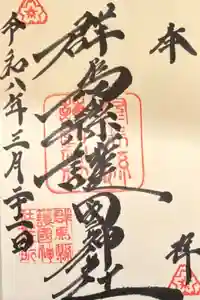 奉拝
群馬縣護國神社
令和八年三月二十一日
群馬縣護國神社社務所